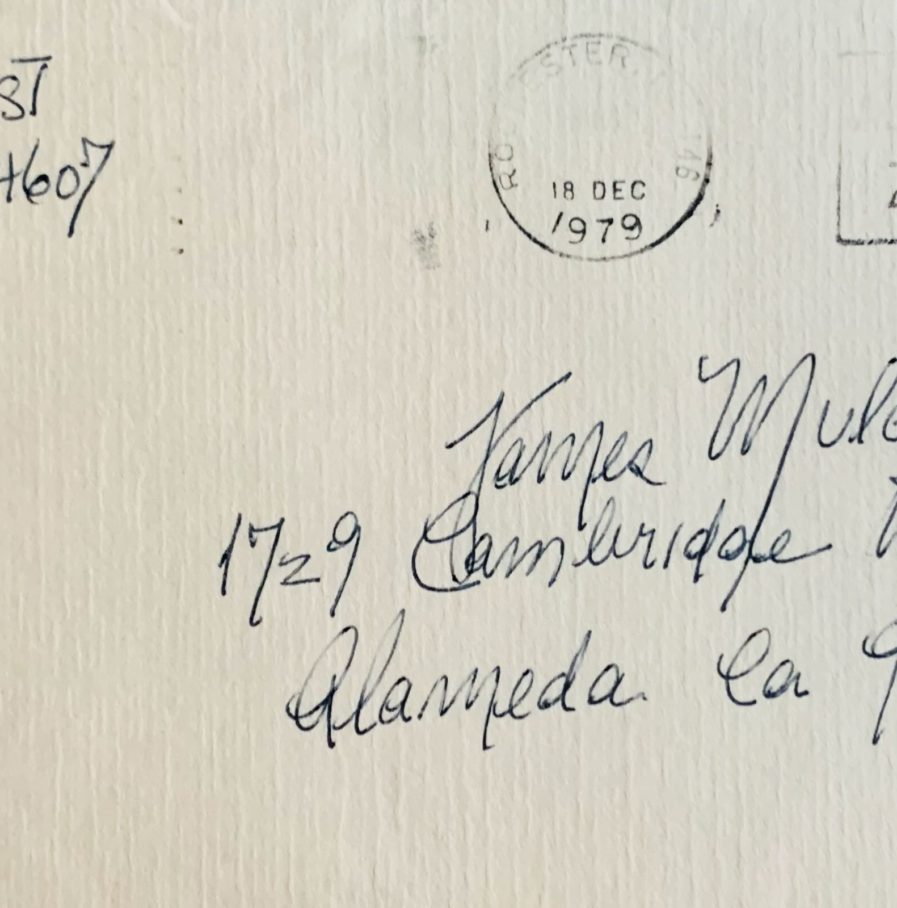 ST
4607
ROCHESTER, N 146
18 DEC
1979
James
1729 Cambridge
Alameda Ca 9